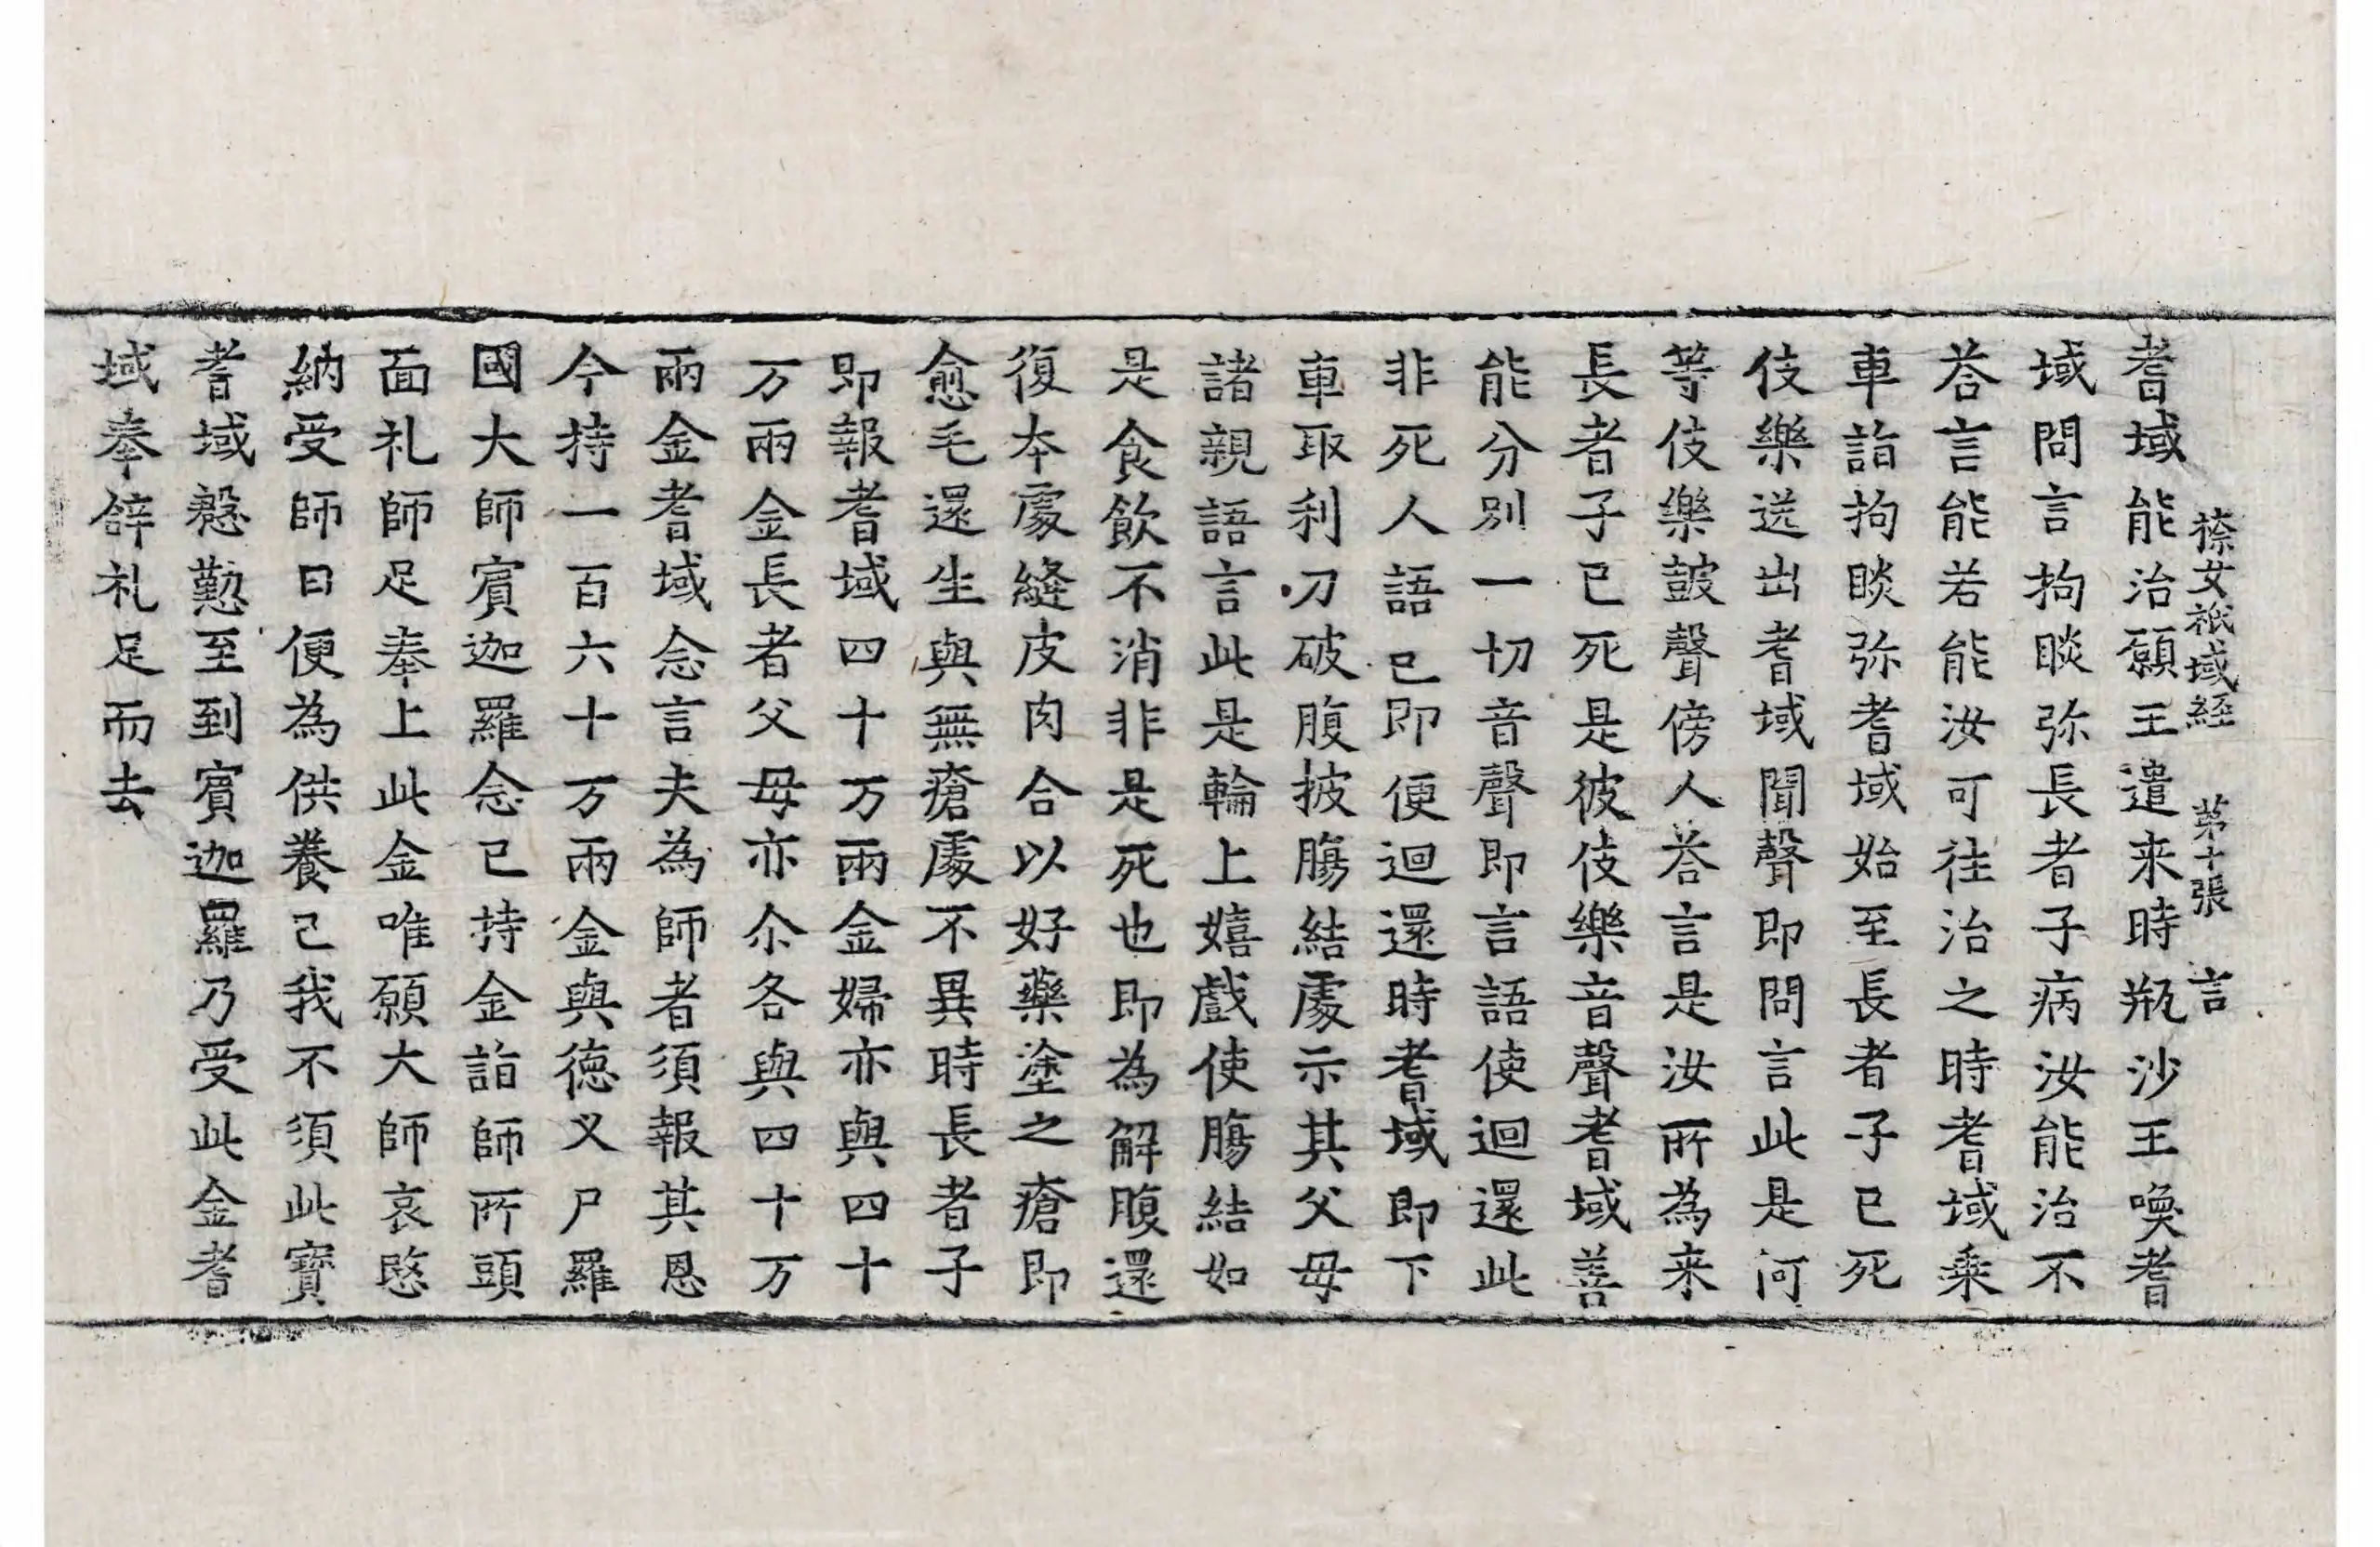 㮈女祇域經 苐十張 言
耆域能治願王遣来時瓶沙王喚耆
域問言拘睒弥長者子病汝能治不
荅言能若能汝可往治之時耆域乗
車詣拘睒弥耆域始至長者子已死
伎樂送出耆域聞聲即問言此是何
等伎樂皷聲傍人荅言是汝所為来
長者子已死是彼伎樂音聲耆域善
能分別一切音聲即言語使迴還此
非死人語已即便迴還時耆域即下
車取利刀破腹披膓結處示其父母
諸親語言此是輪上嬉戲使膓結如
是食飲不消非是死也即為解腹還
復本處縫皮肉合以好藥塗之瘡即
愈毛還生與無瘡處不異時長者子
即報耆域四十万兩金婦亦與四十
万兩金長者父母亦尒各與四十万
兩金耆域念言夫為師者須報其恩
今持一百六十万兩金與德叉尸羅
國大師賓迦羅念已持金詣師所頭
面礼師足奉上此金唯願大師哀愍
納受師曰便為供養已我不須此寶
耆域慇懃至到賓迦羅乃受此金耆
域奉辤礼足而去